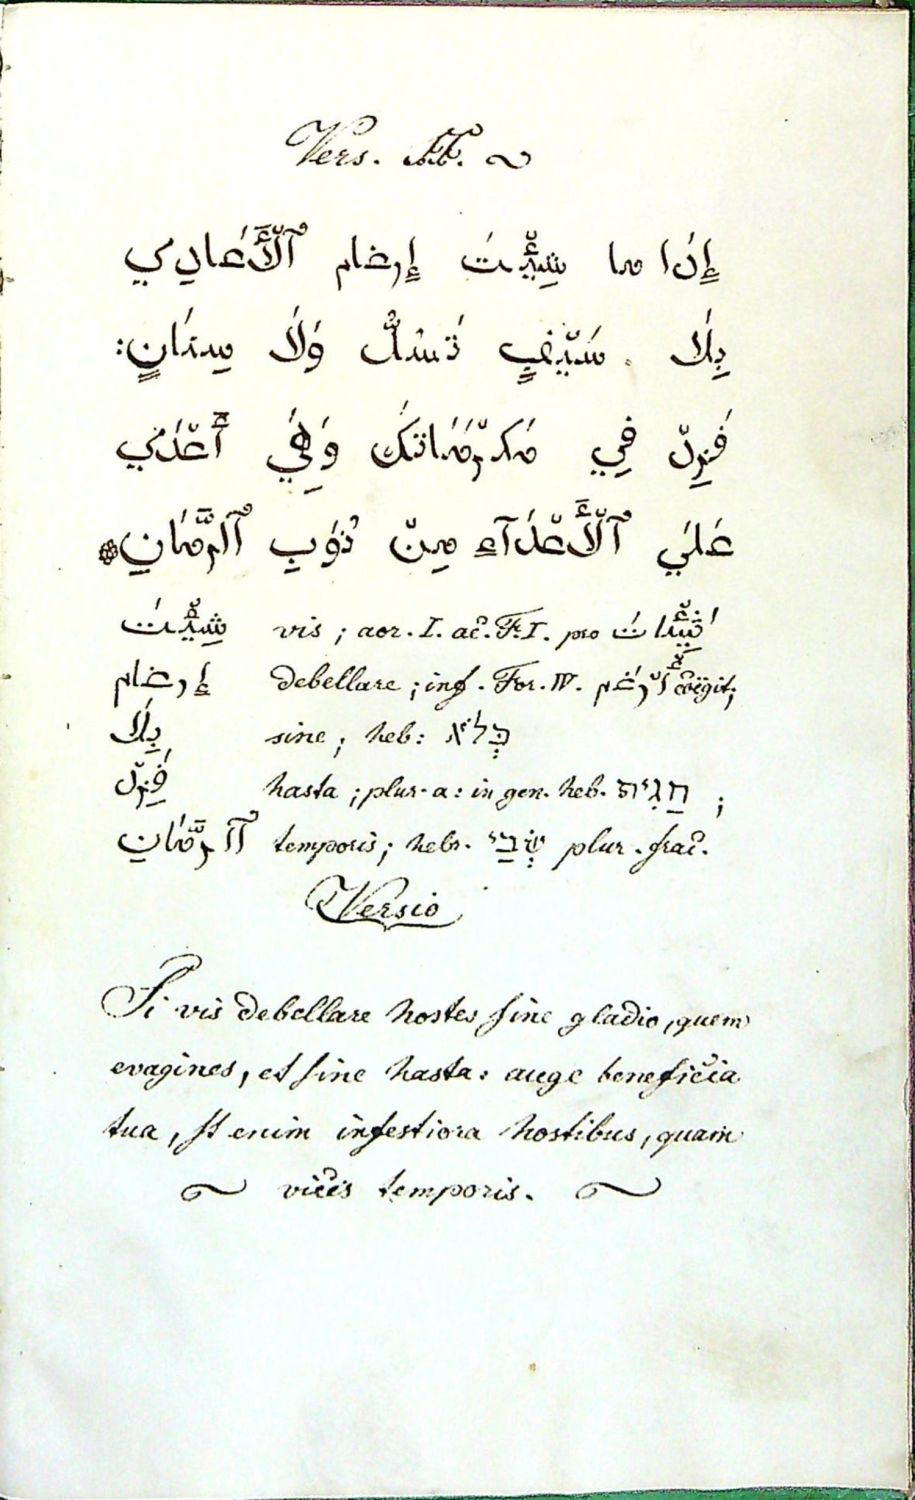 Vers.
إِذَا ما شِئْتَ إِرغام ٱلْأَعَادِي
بِلَا سَيْفٍ تَسُلُّ وَلَا سِنَانٍ:
فَزِدْ فِي مَكْرُمَاتِكَ وَهِيَ أَعْدَي
عَلَي ٱلْأَعْدَآءِ مِنْ نُوَبِ ٱلزَّمَانِ
شِئْتَ vis; aor. I. ac̃. F. I. pro
إرغام debellare; inf. For. IV. coëgit;
بِلَا sine; heb: בְּלֹא
hasta; plur. a: in gen. heb.
ٱلزَّمَانِ temporis; hebr. plur. frac̃.
Versio
Si vis debellare hostes sine gladio, quem
evagines, et sine hasta: auge beneficia
tua, st enim infestiora hostibus, quam
vices temporis.